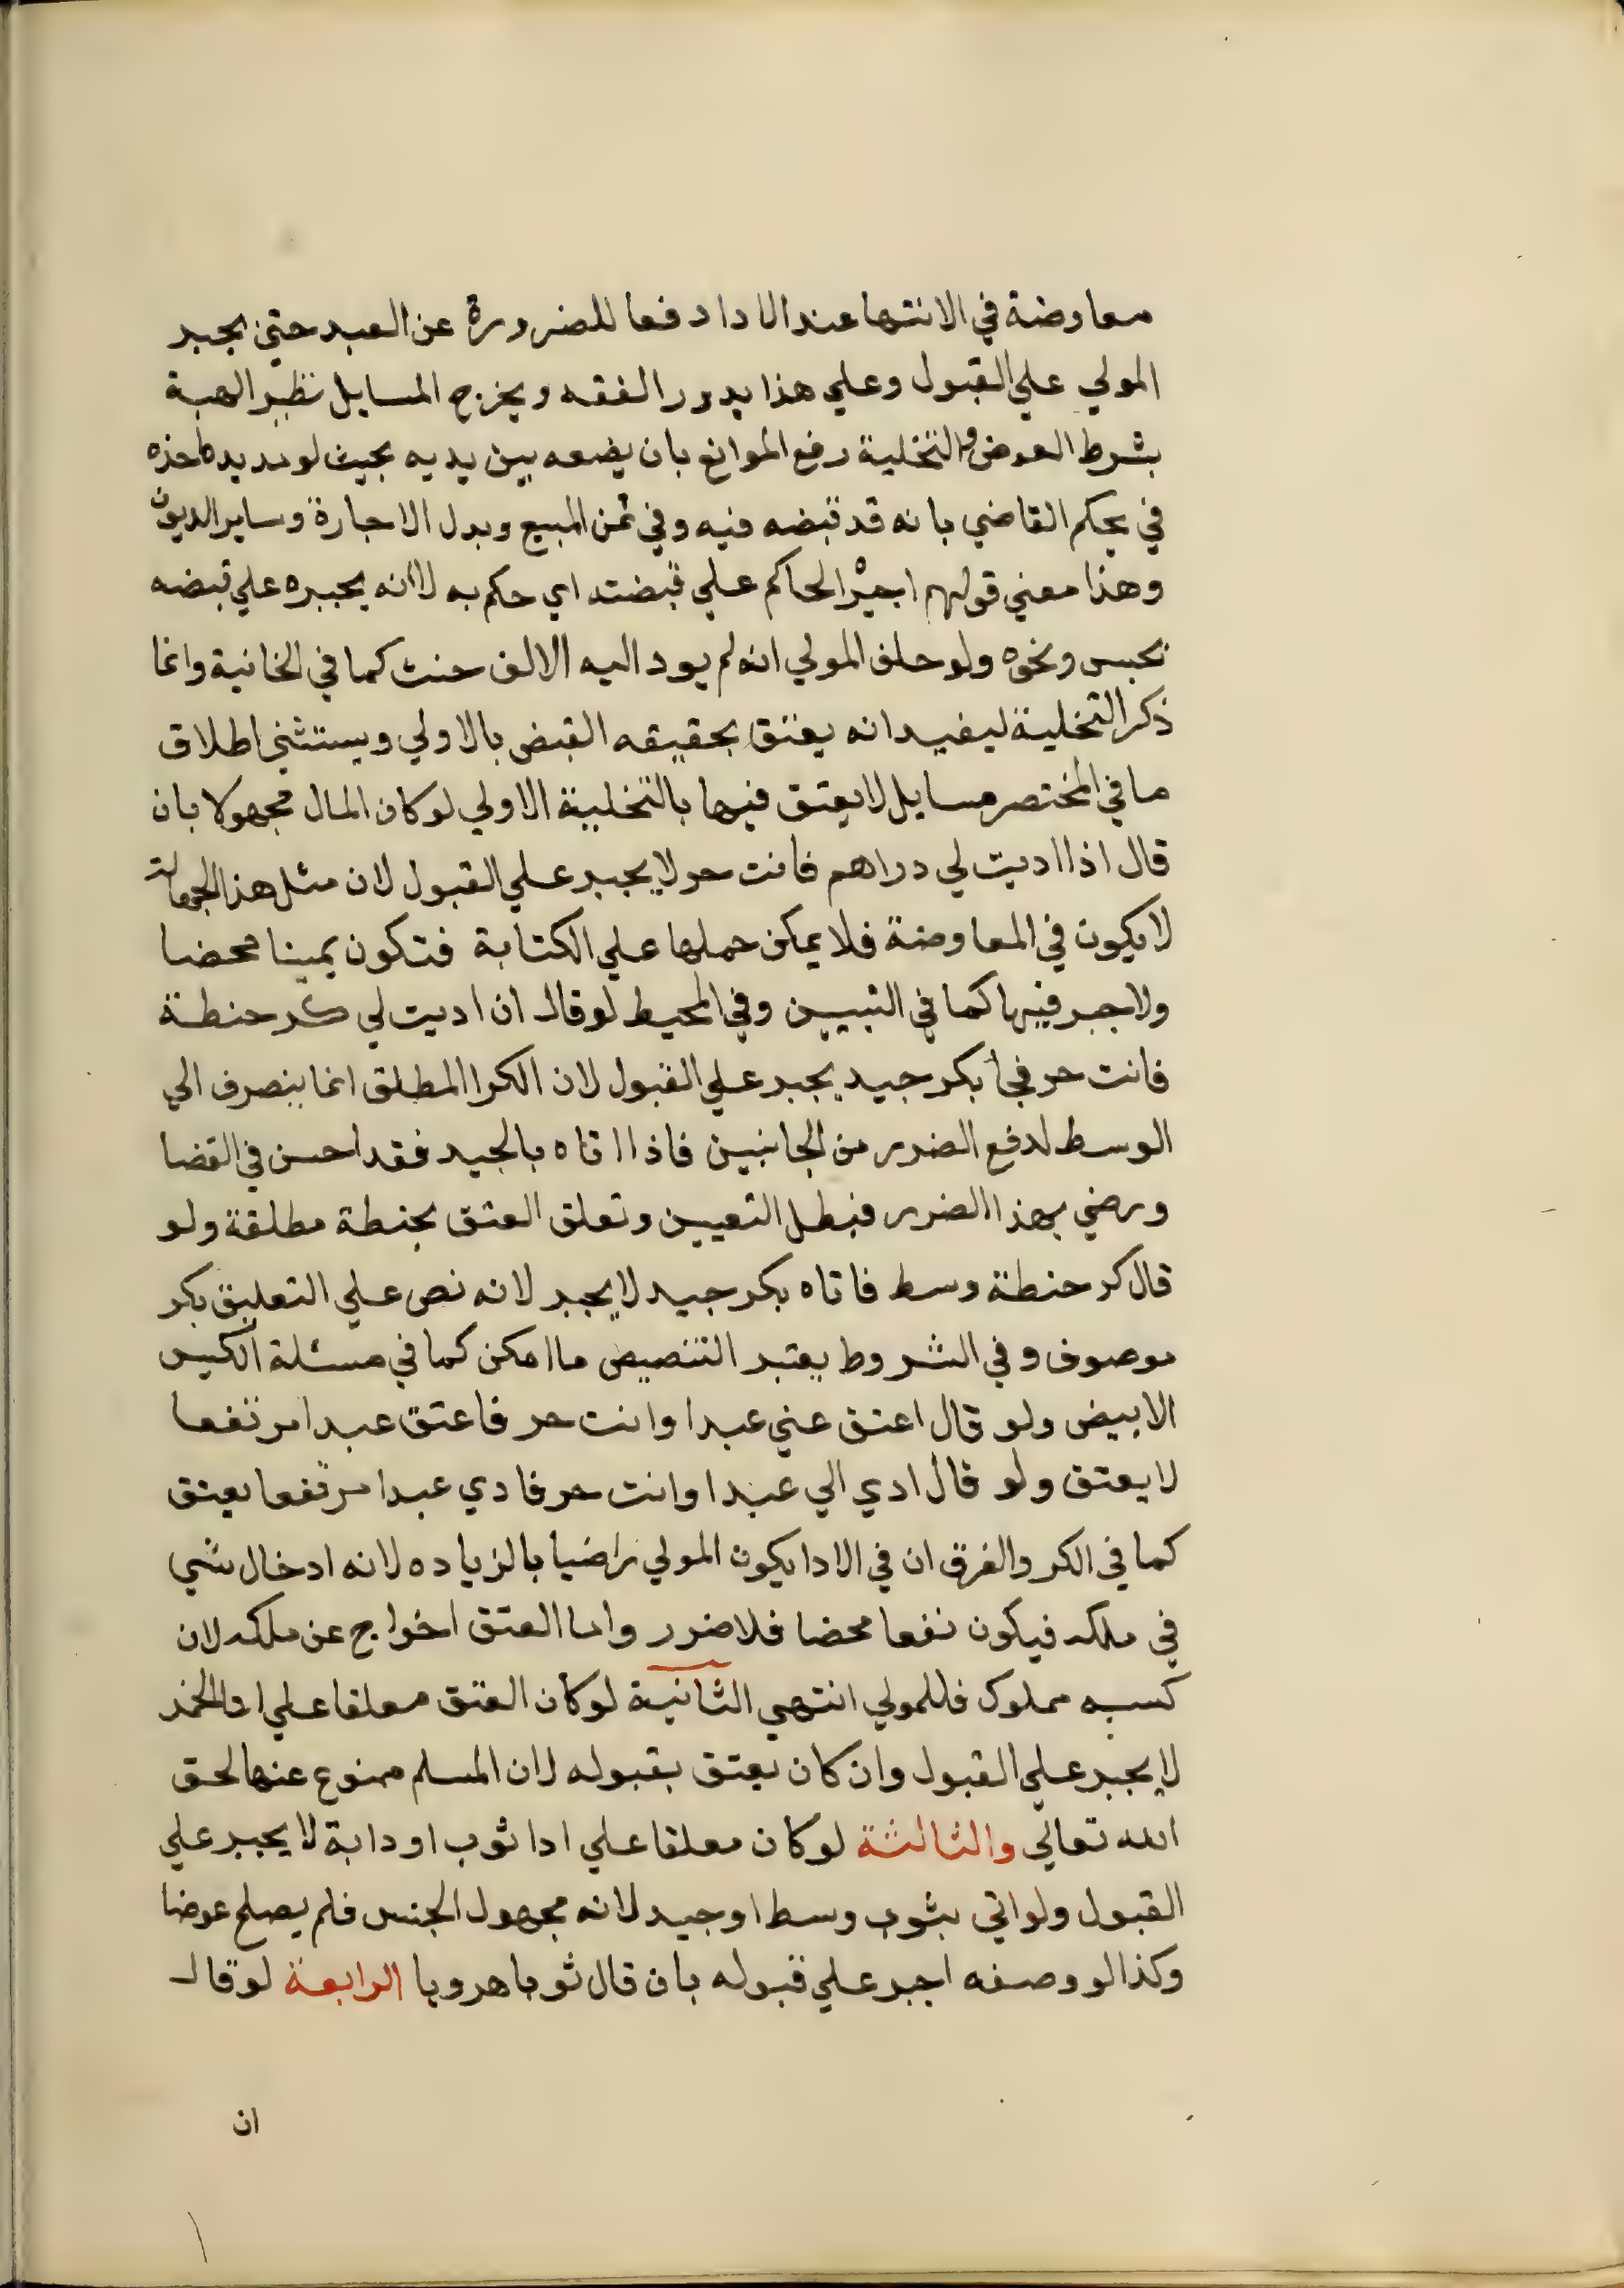 معاوضة في الانتها عند الادا دفعا للضرورة عن العبد حتي يجبر
المولي علي القبول وعلي هذا يدور الفقه ويخرج المسايل نظير الهبة
بشرط العوض والتخلية رفع الموانع بان يضعه بين يديه بحيث لو مد يده اخذه
في يحكم القاضي بانه قد قبضه فيه وفي ثمن المبيع وبدل الاجارة وساير الديون
وهذا معني قولهم اجبر الحاكم علي قبضته اي حكم به لا انه يجبره علي قبضه
بحبس ونحوه ولو حلف المولي انه لم يود اليه الالف حنث كما في الخانية وانما
ذكر التخلية ليفيد انه يعتق بحقيقه القبض بالاولي ويستثني اطلاق
ما في المختصر مسايل لا يعتق فيها بالتخلية الاولي لو كان المال مجهولا بان
قال اذا اديت لي دراهم فانت حر لا يجبر علي القبول لان مثل هذا الجهالة
لا يكون في المعاوضة فلا يمكن حملها علي الكتابة فتكون يمينا محضا
ولا جبر فيها كما في التبيين وفي المحيط لو قال ان اديت لي كر حنطة
فانت حر فجا بكر جيد يجبر علي القبول لان الكر المطلق انما ينصرف الي
الوسط لدفع الضرر من الجانبين فاذا اتاه بالجيد فقد احسن في القضا
ورضي بهذا الضرر فبطل التعيين وتعلق العتق بحنطة مطلقة ولو
قال كر حنطة وسط فاتاه بكر جيد لا يجبر لانه نص علي التعليق بكر
موصوف وفي الشروط يعتبر التنصيص ما امكن كما في مسئلة الكيس
الابيض ولو قال اعتق عني عبدا وانت حر فاعتق عبدا مرتفعا
لا يعتق ولو قال ادي الي عبدا وانت حر فادي عبدا مرتفعا يعتق
كما في الكر والفرق ان في الادا يكون المولي راضيا بالزياده لانه ادخال شي
في ملكه فيكون نفعا محضا فلا ضرر واما العتق اخراج عن ملكه لان
كسبه مملوك فللمولي انتهي الثانية لو كان العتق معلقا علي ادا الخمر
لا يجبر علي القبول وان كان يعتق بقبوله لان المسلم ممنوع عنها لحق
الله تعالي والثالثة لو كان معلقا علي ادا ثوب او دابة لا يجبر علي
القبول ولو اتي بثوب وسط او جيد لانه مجهول الجنس فلم يصلح عوضا
وكذا لو وصفه اجبر علي قبوله بان قال ثوبا هرويا الرابعة لو قال
ان